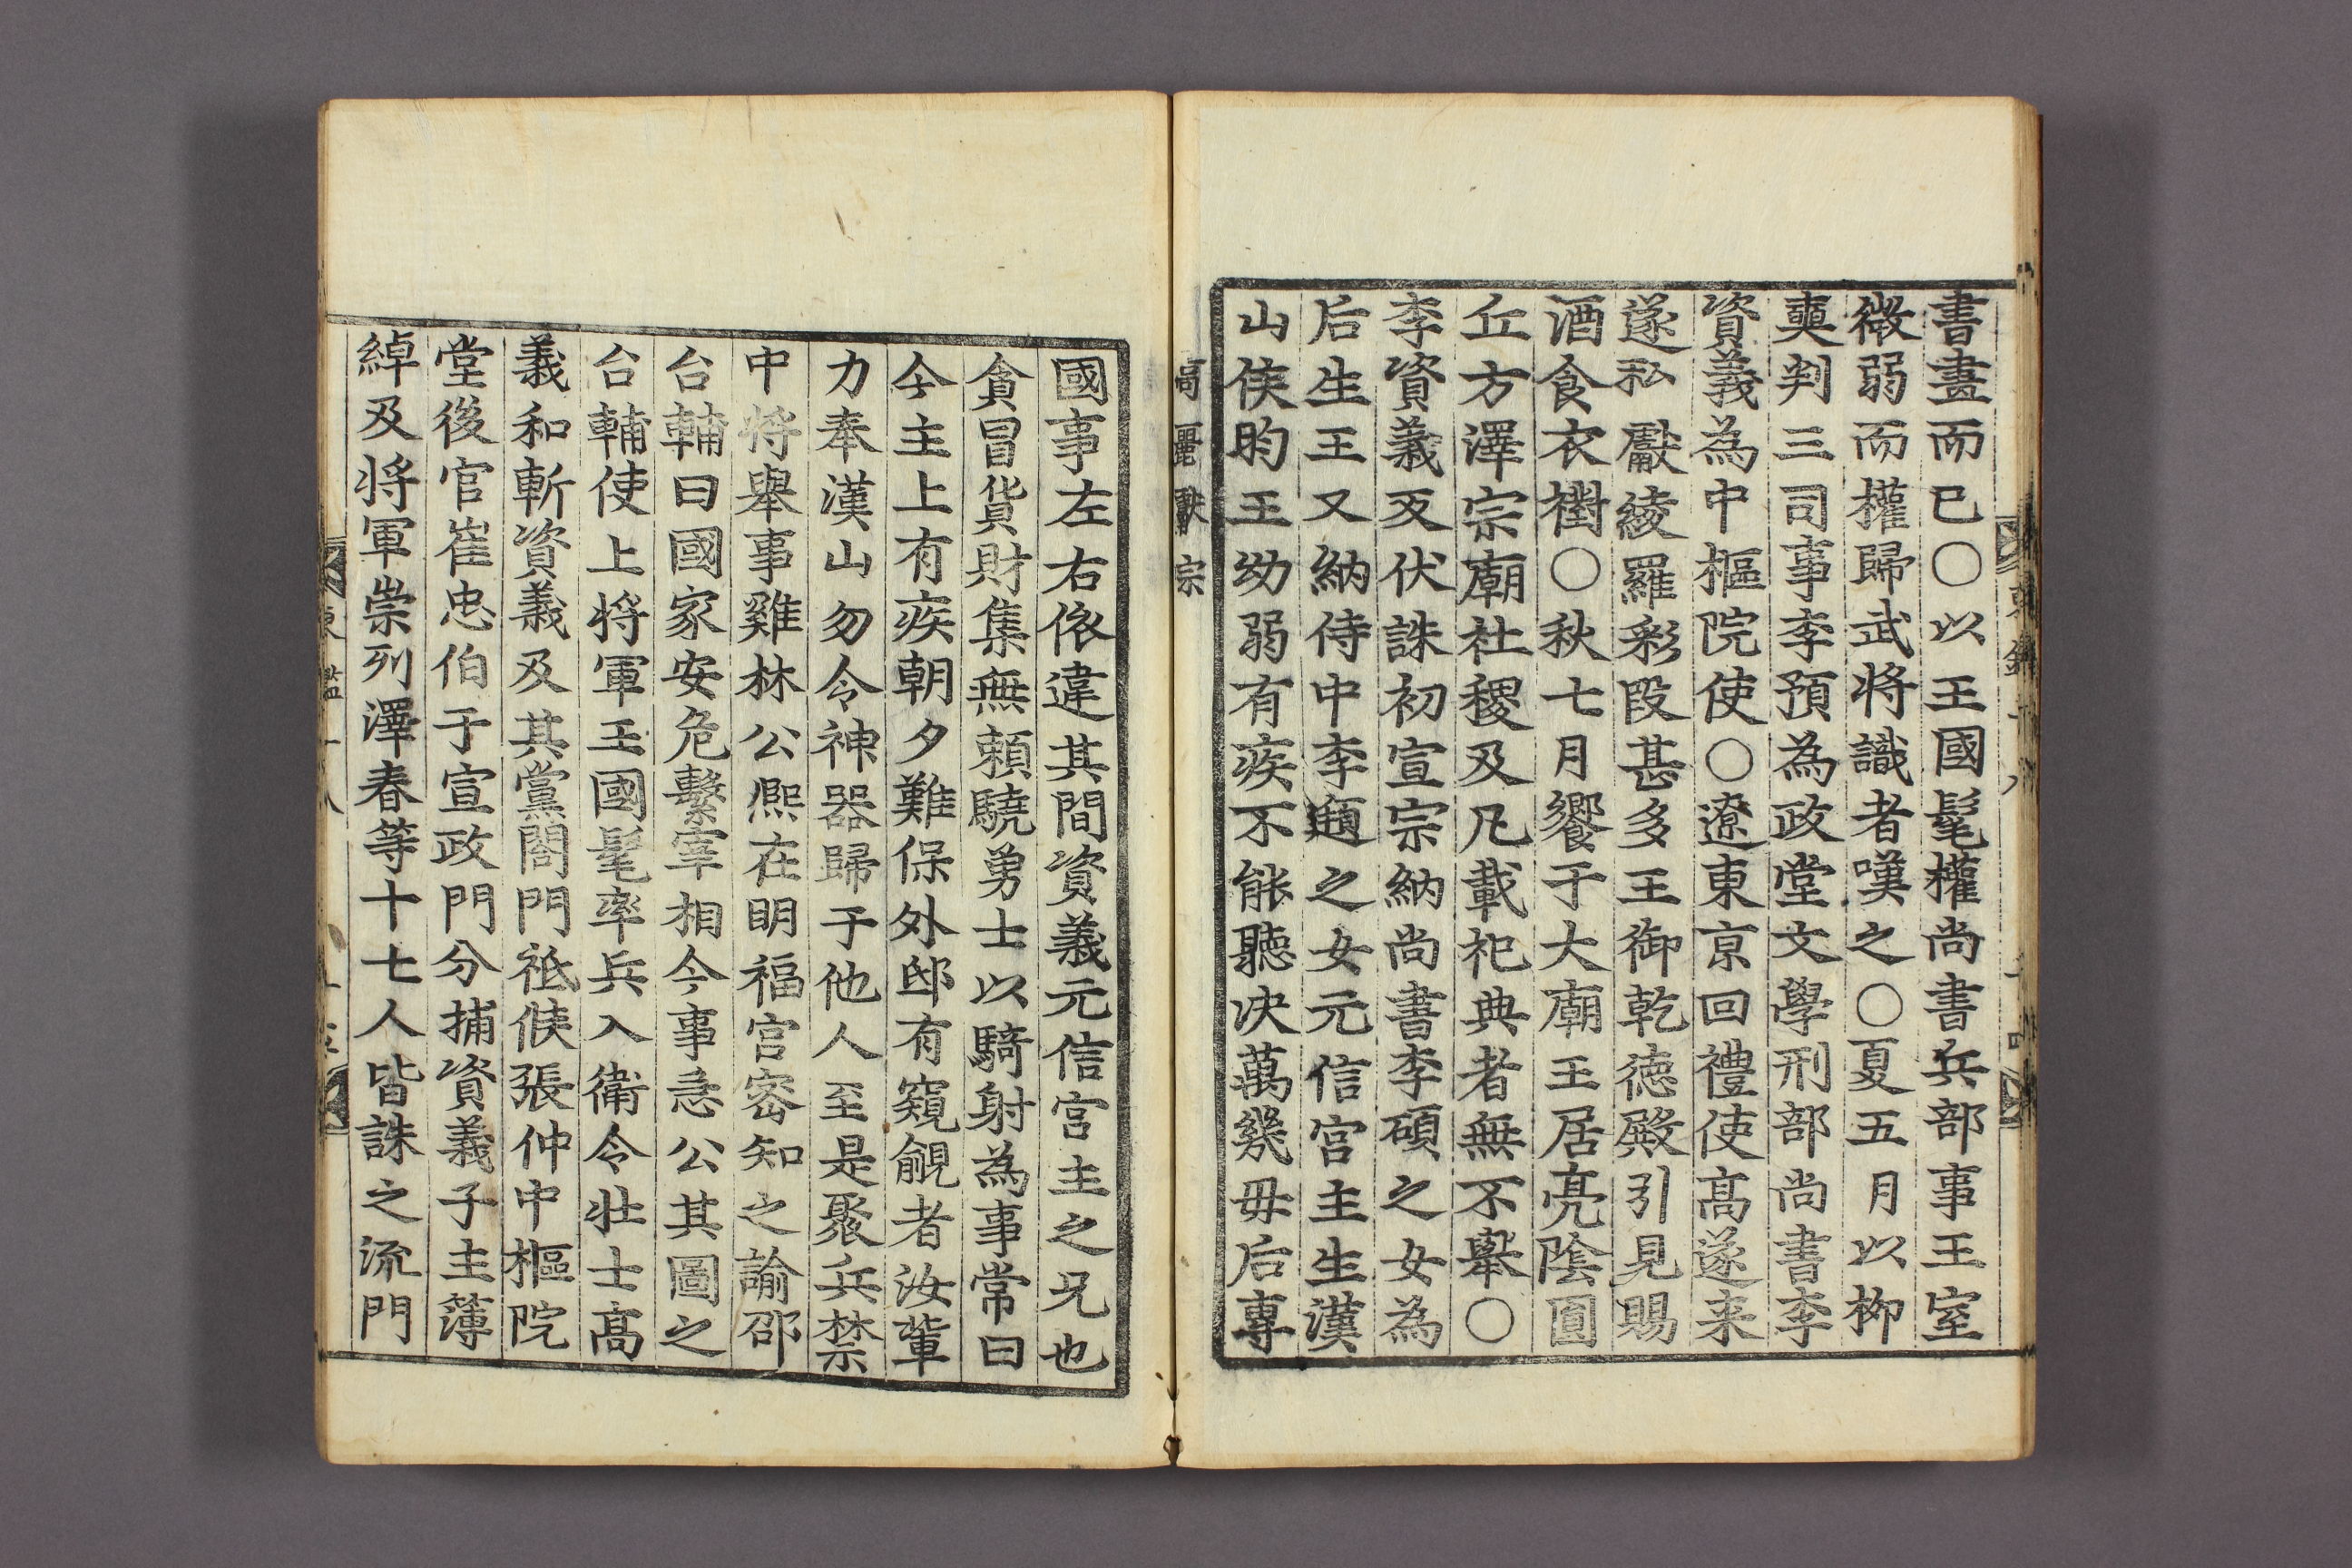 書畫而已〇以王國髦權尚書兵部事王室
微弱而權歸武將識者嘆之〇夏五月以柳
奭判三司事李預為政堂文學刑部尚書李
資義為中樞院使〇遼東京回禮使高遂来
遂私獻綾羅彩段甚多王御乾德殿引見賜
酒食衣襨〇秋七月饗于大廟王居亮陰圓
丘方澤宗廟社稷及凡載祀典者無不舉〇
李資義叐伏誅初宣宗納尚書李碩之女為
后生王又納侍中李頲之女元信宮主生漢
山侯昀王幼弱有疾不能聽决萬幾毋后專
高麗獻宗
國事左右依違其間資義元信宮主之兄也
貪冒貨財集無頼驍勇士以騎射為事常曰
今主上有疾朝夕難保外邸有窺覦者汝輩
力奉漢山勿令神器歸于他人至是聚兵禁
中将舉事雞林公熈在明福宮密知之諭邵
台輔曰國家安危繫宰相今事急公其圖之
台輔使上将軍王國髦率兵入衛令壯士高
義和斬資義及其黨閤門祗候張仲中樞院
堂後官崔忠伯于宣政門分捕資義子主簿
綽及将軍崇列澤春等十七人皆誅之流門